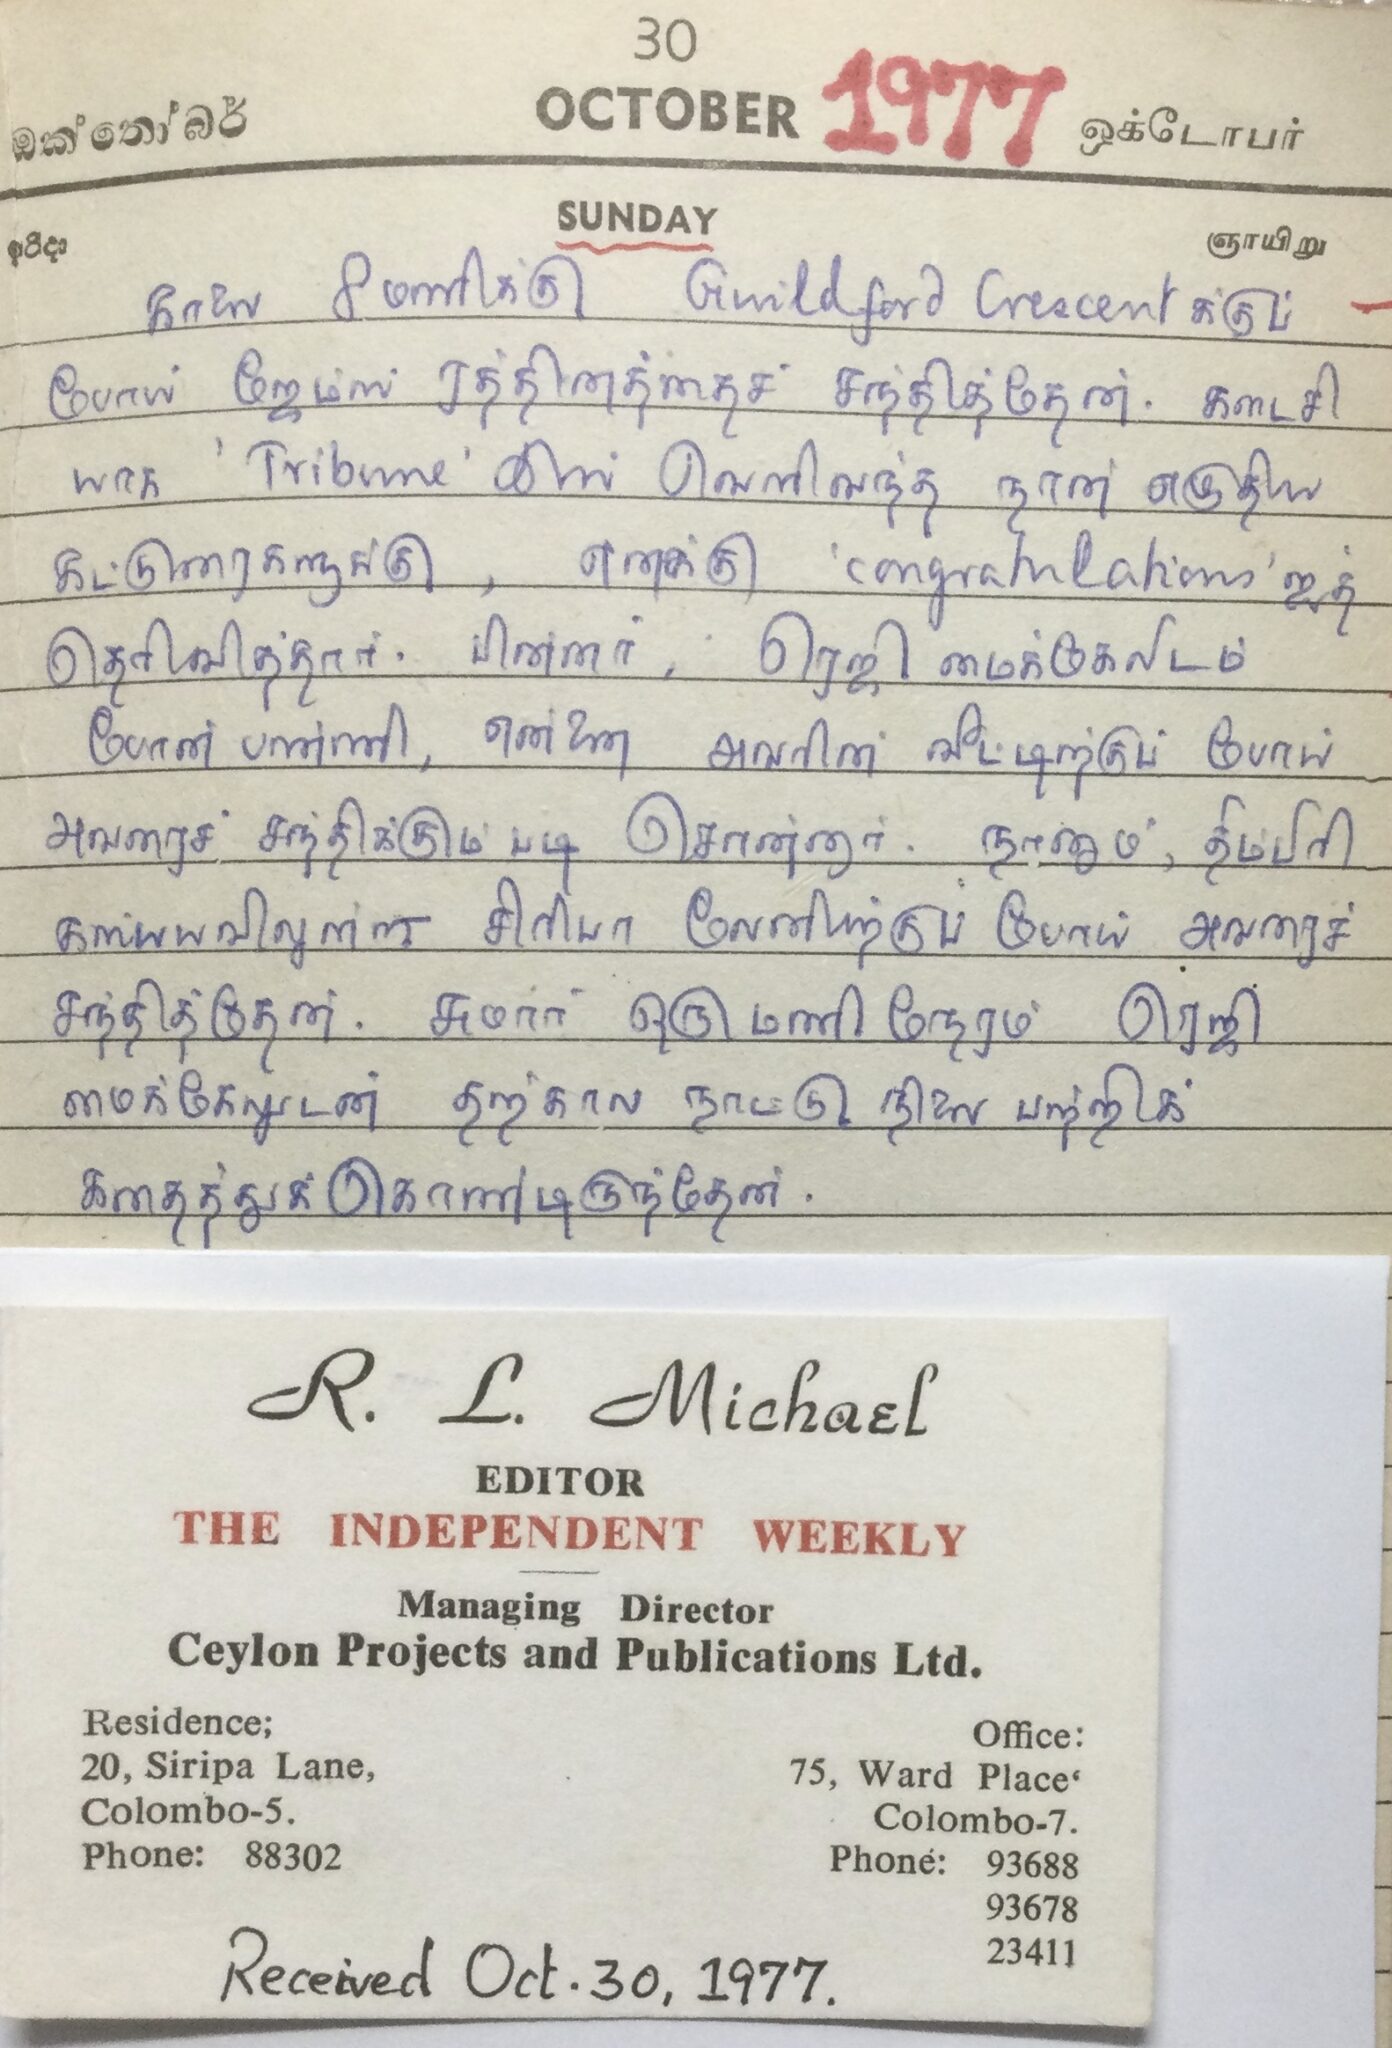 30
ඔක්තෝබර් OCTOBER 1977 ஒக்டோபர்
ඉරිදා SUNDAY ஞாயிறு
காலை 8 மணிக்கு Guildford Crescent க்குப்
போய் ஜேம்ஸ் ரத்தினத்தைச் சந்தித்தேன். கடைசி
யாக 'Tribune' இல் வெளிவந்த நான் எழுதிய
கட்டுரைகளுக்கு, எனக்கு 'congratulations' ஐத்
தெரிவித்தார். பின்னர், ரெஜி மைக்கேலிடம்
போன் பண்ணி, என்னை அவரின் வீட்டிற்குப் போய்
அவரைச் சந்திக்கும்படி சொன்னார். நானும், திம்பிரி
கஸ்யாயவிலுள்ள சிரிபா லேனிற்குப் போய் அவரைச்
சந்தித்தேன். சுமார் ஒரு மணி நேரம் ரெஜி
மைக்கேலுடன் தற்கால நாட்டு நிலை பற்றிக்
கதைத்துக் கொண்டிருந்தேன்.
R. L. Michael
EDITOR
THE INDEPENDENT WEEKLY
Managing Director
Ceylon Projects and Publications Ltd.
Residence;
20, Siripa Lane,
Colombo-5.
Phone: 88302
Office:
75, Ward Place‘
Colombo-7.
Phone: 93688
93678
23411
Received Oct. 30, 1977.